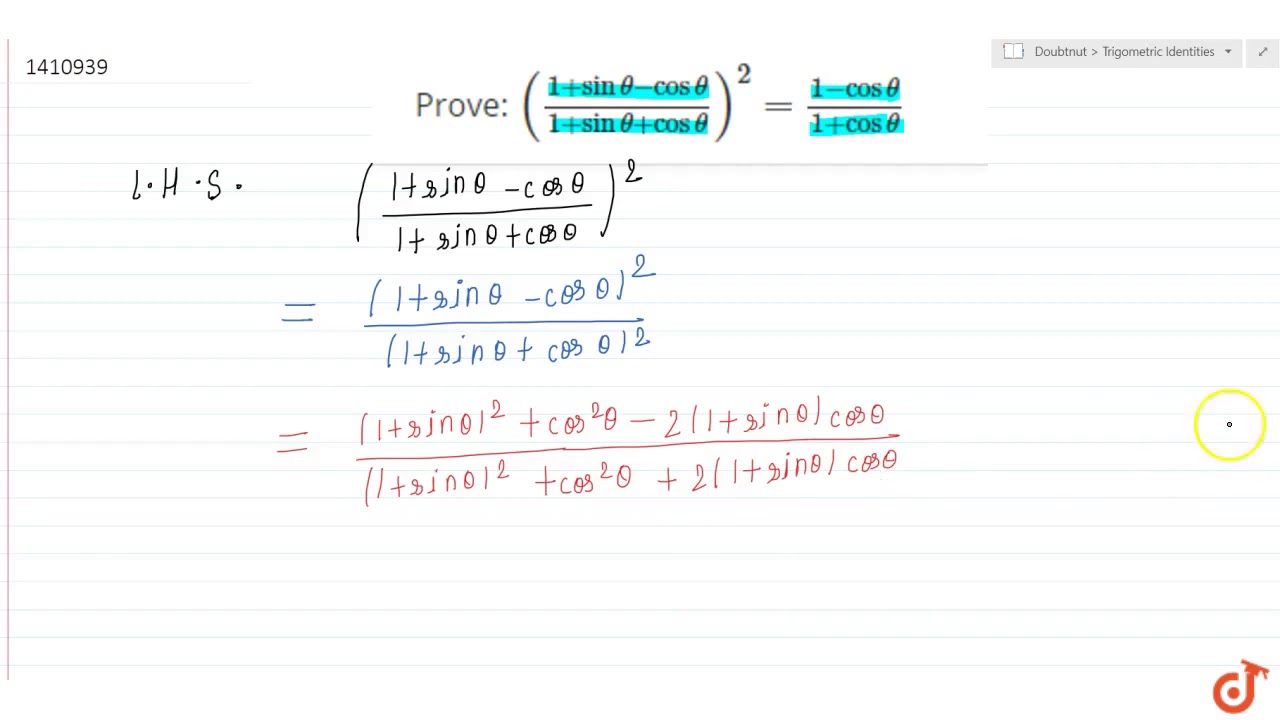 Doubtnut > Trigometric Identities
1410939
Prove: ((1+sin θ−cos θ)/(1+sin θ+cos θ))² = (1−cos θ)/(1+cos θ)
L.H.S. ((1+sinθ −cosθ)/(1+sinθ+cosθ))²
= (1+sinθ −cosθ)²/(1+sinθ+cosθ)²
= ((1+sinθ)²+cos²θ−2(1+sinθ)cosθ)/((1+sinθ)²+cos²θ+2(1+sinθ)cosθ)